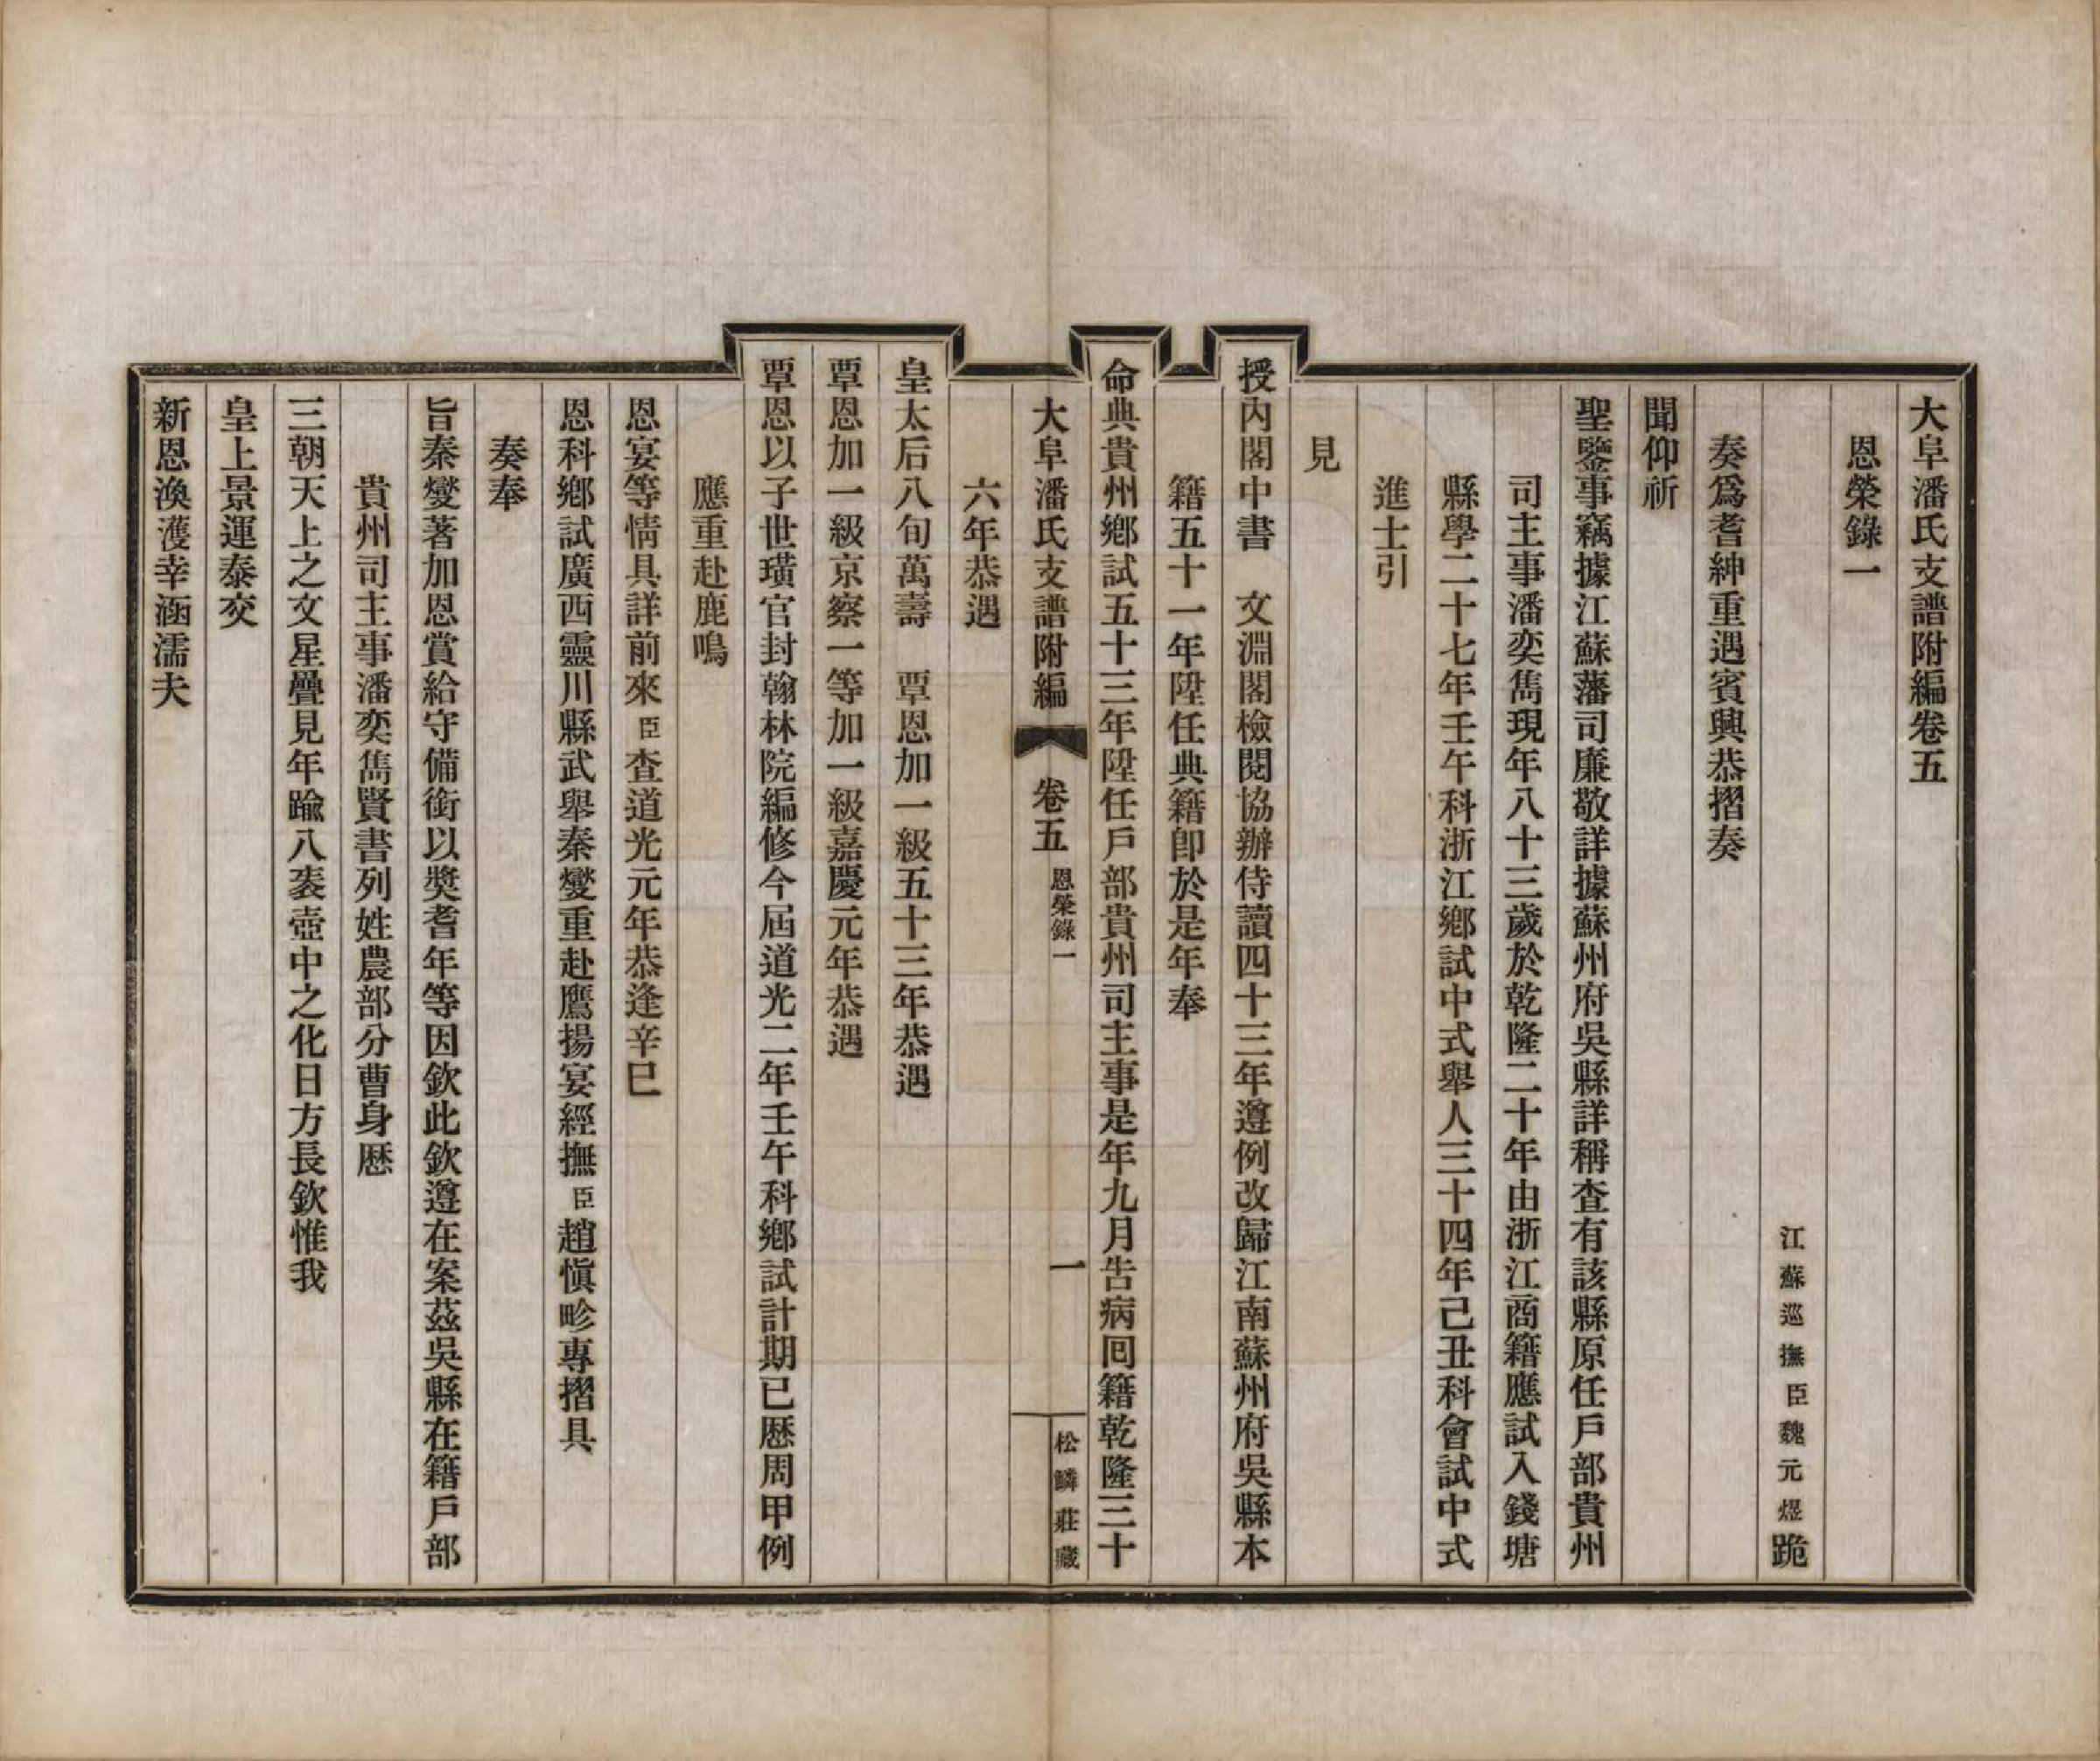 大阜潘氏支譜附編卷五
恩榮錄一
江蘇巡撫臣魏元煜跪
奏爲耆紳重遇賓興恭摺奏
聞仰祈
聖鑒事竊據江蘇藩司廉敬詳據蘇州府吳縣詳稱查有該縣原任戶部貴州
司主事潘奕雋現年八十三歲於乾隆二十年由浙江商籍應試入錢塘
縣學二十七年壬午科浙江鄉試中式舉人三十四年己丑科會試中式
進士引
見
授內閣中書　文淵閣檢閱協辦侍讀四十三年遵例改歸江南蘇州府吳縣本
籍五十一年陞任典籍卽於是年奉
命典貴州鄉試五十三年陞任戶部貴州司主事是年九月告病回籍乾隆三十
大阜潘氏支譜附編　卷五　恩榮錄一　一　松鱗莊藏
六年恭遇
皇太后八旬萬壽　覃恩加一級五十三年恭遇
覃恩加一級京察一等加一級嘉慶元年恭遇
覃恩以子世璜官封翰林院編修今屆道光二年壬午科鄉試計期已歷周甲例
應重赴鹿鳴
恩宴等情具詳前來臣查道光元年恭逢辛巳
恩科鄉試廣西靈川縣武舉秦燮重赴鷹揚宴經撫臣趙愼畛專摺具
奏奉
旨秦燮著加恩賞給守備銜以奬耆年等因欽此欽遵在案茲吳縣在籍戶部
貴州司主事潘奕雋賢書列姓農部分曹身歷
三朝天上之文星疊見年踰八袠壺中之化日方長欽惟我
皇上景運泰交
新恩渙濩幸涵濡夫